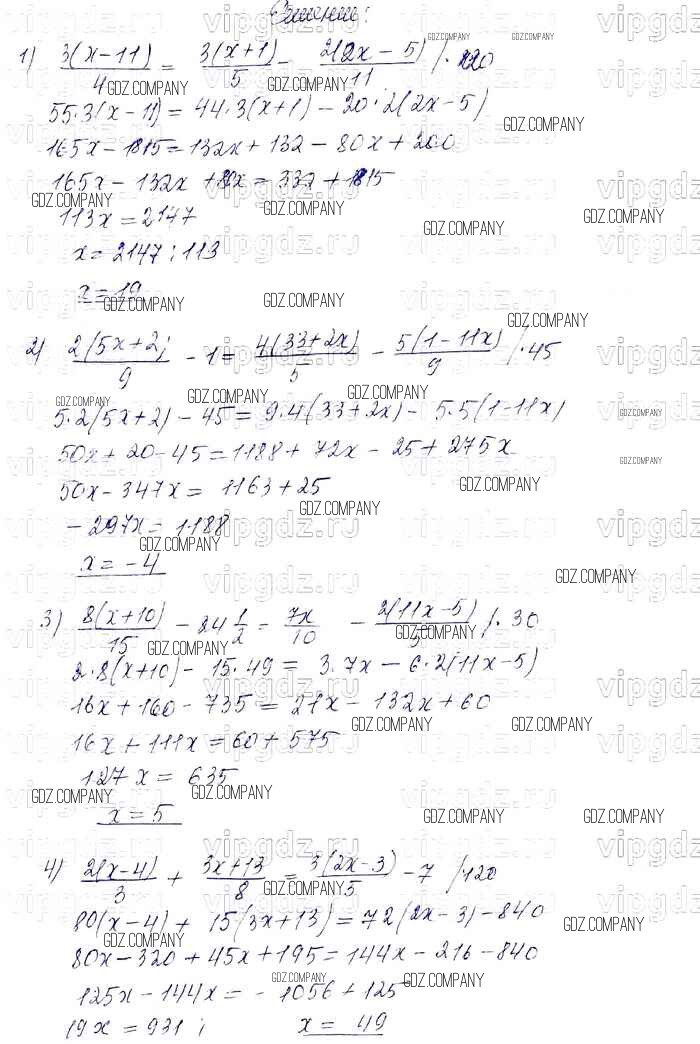 Решение:
1) 3(x-11)/4 = 3(x+1)/5 - 2(2x-5)/11 /·220
55·3(x-11) = 44·3(x+1) - 20·2(2x-5)
165x - 1815 = 132x + 132 - 80x + 200
165x - 132x + 80x = 332 + 1815
113x = 2147
x = 2147 : 113
x = 19
2) 2(5x+2)/9 - 1 = 4(33+2x)/5 - 5(1-11x)/9 /·45
5·2(5x+2) - 45 = 9·4(33+2x) - 5·5(1-11x)
50x + 20 - 45 = 1188 + 72x - 25 + 275x
50x - 347x = 1163 + 25
-297x = 1188
x = -4
3) 8(x+10)/15 - 24 1/2 = 7x/10 - 2(11x-5)/5 /·30
2·8(x+10) - 15·49 = 3·7x - 6·2(11x-5)
16x + 160 - 735 = 21x - 132x + 60
16x + 111x = 60 + 575
127x = 635
x = 5
4) 2(x-4)/3 + 3x+13/8 = 3(2x-3)/5 - 7 /120
80(x-4) + 15(3x+13) = 72(2x-3) - 840
80x - 320 + 45x + 195 = 144x - 216 - 840
125x - 144x = -1056 + 125
19x = 931 ; x = 49